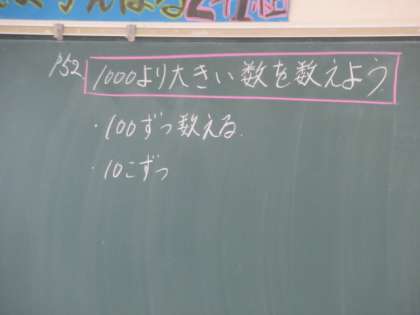 P52 1000より大きい数を数えよう
・100ずつ数える.
・10こずつ